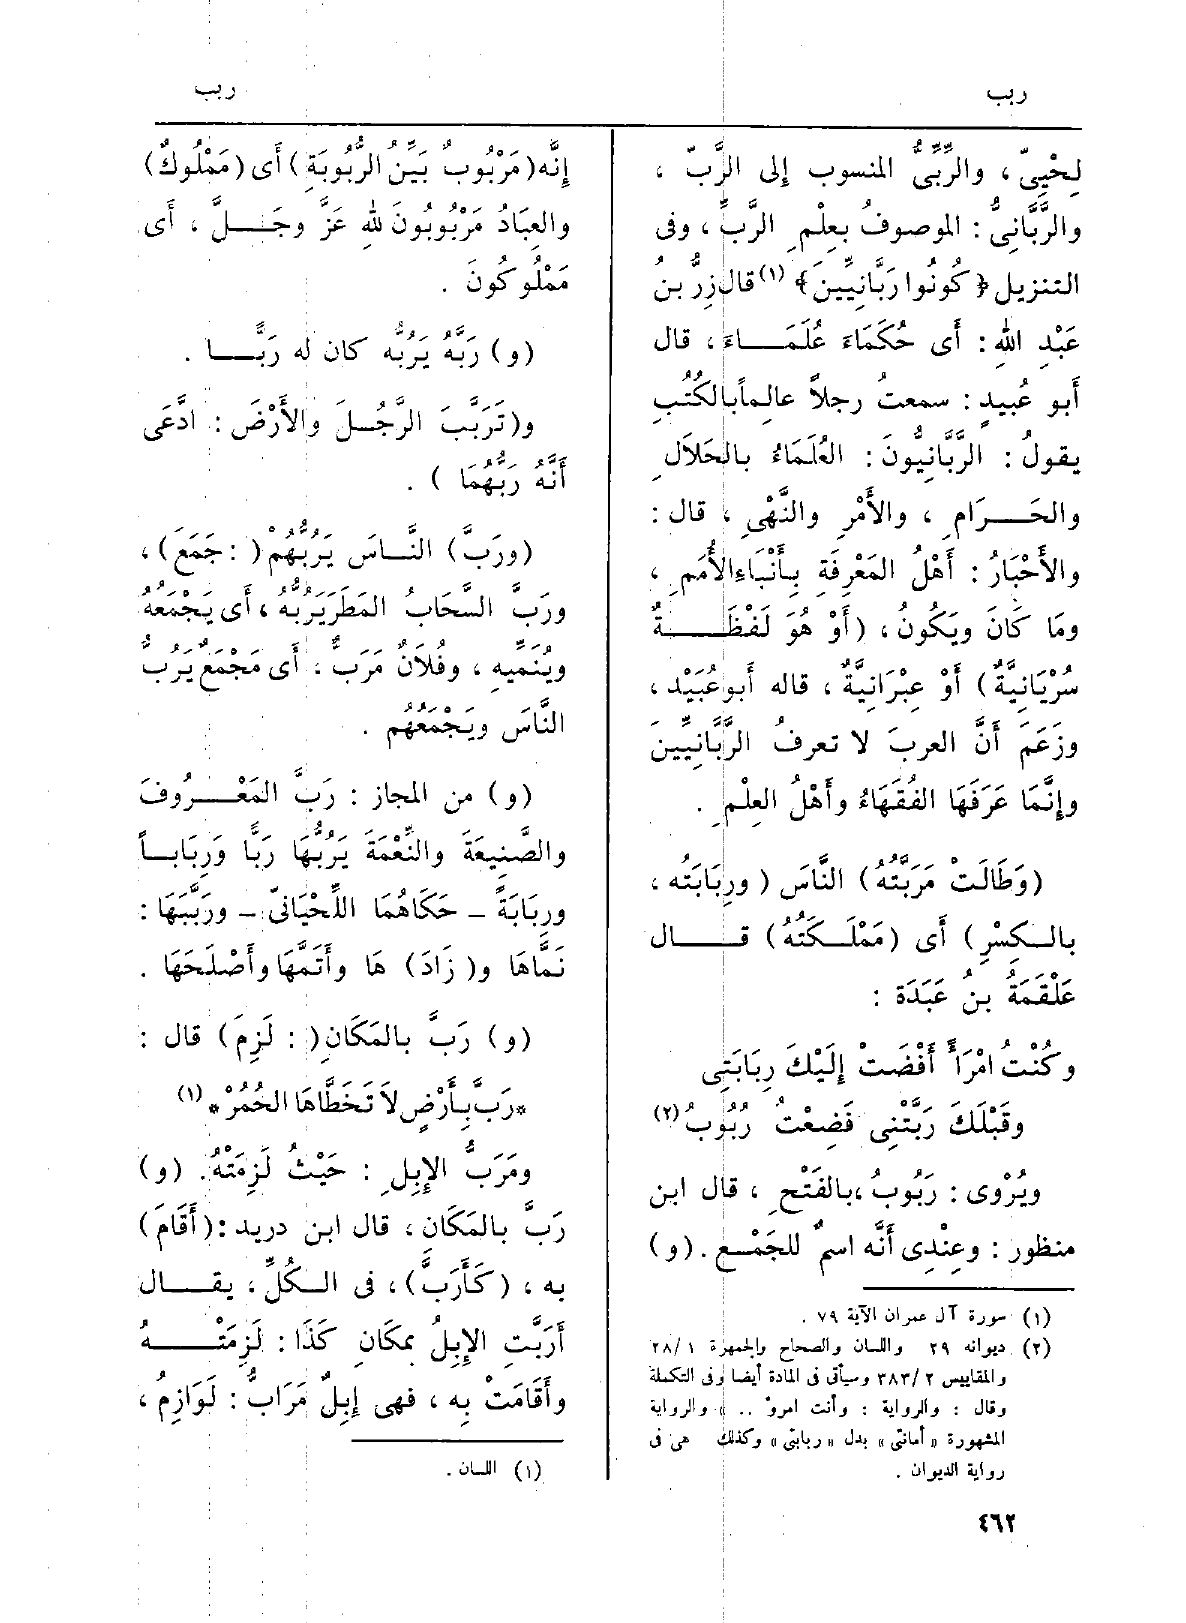 ربب
ربب
لِحْيِىّ ، والرِّبِّىُّ المنسوب إلى الرَّبّ ،
والرَّبَّانِىُّ : الموصوفُ بعِلْمِ الرَّبِّ ، وفى
التنزيل ﴿كُونُوا رَبَّانِيِّينَ﴾ (١) قال زِرُّ بنُ
عَبْدِ اللهِ : أَى حُكَمَاءَ عُلَمَـــاءَ ، قال
أَبو عُبيدٍ : سمعتُ رجلاً عالِماً بالكُتُبِ
يقولُ : الرَّبَّانِيُّونَ : العُلَمَاءُ بالحَلاَلِ
والحَـــرَامِ ، والأَمْرِ والنَّهْىِ ، قال :
والأَحْبَارُ : أَهْلُ المَعْرِفَةِ بِأَنْبَاءِ الأُمَمِ ،
ومَا كَانَ ويَكُونُ ، (أَوْ هُوَ لَفْظَـــةٌ
سُرْيَانِيَّةٌ ) أَوْ عِبْرَانِيَّةٌ ، قاله أَبو عُبَيْد ،
وزَعَمَ أَنَّ العربَ لا تعرفُ الرَّبَّانِيِّينَ
وإِنَّمَا عَرَفَهَا الفُقَهَاءُ وأَهْلُ العِلْمِ .
(وَطَالَتْ مَرَبَّتُهُ ) النَّاسَ ( ورِبَابَتُه ،
بالـكِسْرِ ) أَى (مَمْلَـكَتُهُ ) قَـــال
عَلْقَمَةُ بنُ عَبَدَةَ :
وكُنْتُ امْرَأً أَفْضَتْ إِلَيْكَ رِبَابَتِى
وقَبْلَكَ رَبَّتْنِى فَضِعْتُ رُبُوبُ (٢)
ويُرْوى : رَبُوبُ ، بالفَتْحِ ، قال ابن
منظور : وعِنْدِى أَنَّه اسمٌ للجَمْـعِ . (و)
(١) سورة آل عمران الآية ٧٩ .
(٢) ديوانه ٢٩ واللسان والصحاح والجمهرة ٢٨/١
والمقاييس ٣٨٣/٢ وسيأتى فى المادة أيضا وفى التكملة
وقال : والرواية : وأنت امرؤ .. » والرواية
المشهورة « أمانتى » بدل « ربابتى » وكذلك هى فى
رواية الديوان .
إِنَّه (مَرْبُوبٌ بَيِّنُ الرُّبُوبَةِ ) أَى (مَمْلُوكٌ)
والعِبَادُ مَرْبُوبُونَ للهِ عَزَّ وجَـــلَّ ، أَى
مَمْلُوكُونَ .
(و) رَبَّهُ يَرُبُّه كان له رَبًّـــا .
و(تَرَبَّبَ الرَّجُـلَ والأَرْضَ : ادَّعَى
أَنَّهُ رَبُّهُمَا ) .
(ورَبَّ ) النَّـاسَ يَرُبُّهُمْ ( : جَمَعَ ) ،
ورَبَّ السَّحَابُ المَطَرَ يَرُبُّهُ ، أَى يَجْمَعُهُ
ويُنَمِّيهِ ، وفُلاَنٌ مَرَبٌّ ، أَى مَجْمَعٌ يَرُبُّ
النَّاسَ ويَجْمَعُهُم .
(و) من المجاز : رَبَّ المَعْـــرُوفَ
والصَّنِيعَةَ والنِّعْمَةَ يَرُبُّهَا رَبًّا وَرِبَابـــاً
ورِبَابَةً – حَكَاهُمَا اللِّحْيَانىّ – ورَبَّبَهَا :
نَمَّاهَا و( زَادَ ) هَا وأَتَمَّهَا وأَصْلَحَهَا .
(و) رَبَّ بالمَكَانِ ( : لَزِمَ ) قال :
* رَبَّ بِأَرْضٍ لاَ تَخَطَّاهَا الحُمُرْ * (١)
ومَرَبُّ الإِبِلِ : حَيْثُ لَزِمَتْهُ . (و)
رَبَّ بالمَكَانِ ، قال ابن دريد : (أَقَامَ)
به ، (كَأَرَبَّ) ، فى الـكُلِّ ، يقـــال
أَرَبَّتِ الإِبِلُ بمكَانِ كَذَا : لَزِمَتْـــهُ
وأَقَامَتْ بِه ، فهى إِبِلٌ مَرَابُّ : لَوَازِمُ ،
(١) اللسان .
٤٦٢